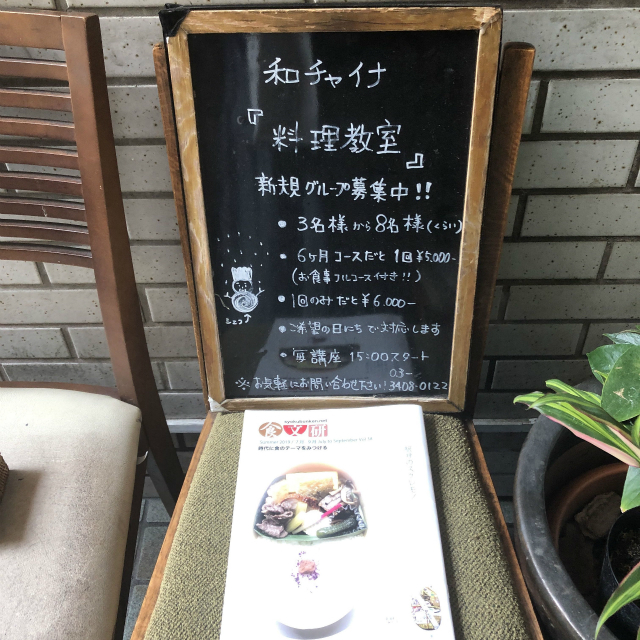 和チャイナ
『料理教室』
新規グループ募集中!!
・3名様から8名様(くらい)
・6ヶ月コースだと1回¥5.000-
(お食事フルコース付き!!)
・1回のみだと¥6.000-
・ご希望の日にちで対応します
・毎講座 15:00スタート
03-
※お気軽にお問い合わせ下さい!3408-0122
食文研
時代に食のテーマをみつける